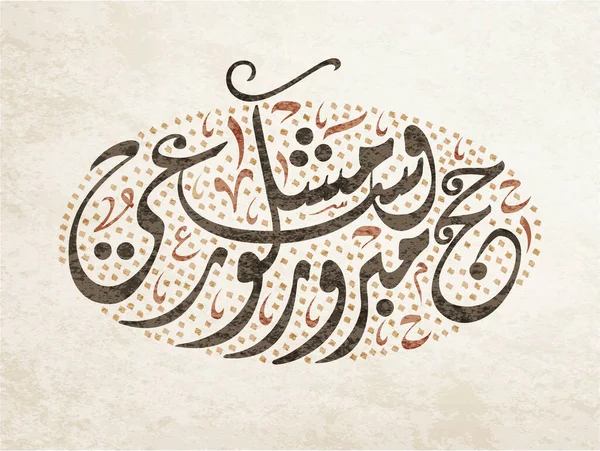 حج مبرور وسعي مشكور